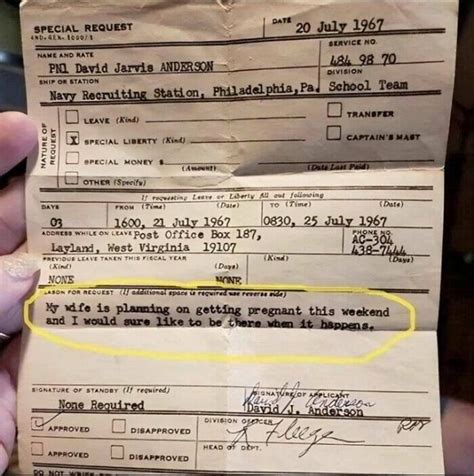 SPECIAL REQUEST
DATE 20 July 1967
NAME AND RATE SERVICE NO.
PN1 David Jarvis ANDERSON 484 98 70
SHIP OR STATION DIVISION
Navy Recruiting Station, Philadelphia, Pa. School Team
NATURE OF REQUEST
LEAVE (Kind) TRANSFER
X SPECIAL LIBERTY (Kind) CAPTAIN'S MAST
SPECIAL MONEY $ (Amount) (Date Last Paid)
OTHER (Specify)
If requesting Leave or Liberty fill out following
DAYS FROM (Time) (Date) TO (Time) (Date)
03 1600, 21 July 1967 0830, 25 July 1967
ADDRESS WHILE ON LEAVE Post Office Box 187, PHONE NO.
Layland, West Virginia 19107 AC-304
438-7444
PREVIOUS LEAVE TAKEN THIS FISCAL YEAR
(Kind) (Days) (Kind) (Days)
NONE NONE
REASON FOR REQUEST (If additional space is required use reverse side)
My wife is planning on getting pregnant this weekend
and I would sure like to be there when it happens.
SIGNATURE OF STANDBY (If required) SIGNATURE OF APPLICANT
None Required David J. Anderson
David J. Anderson
APPROVED DISAPPROVED DIVISION OFFICER
APPROVED DISAPPROVED HEAD OF DEPT.
DO NOT WRITE